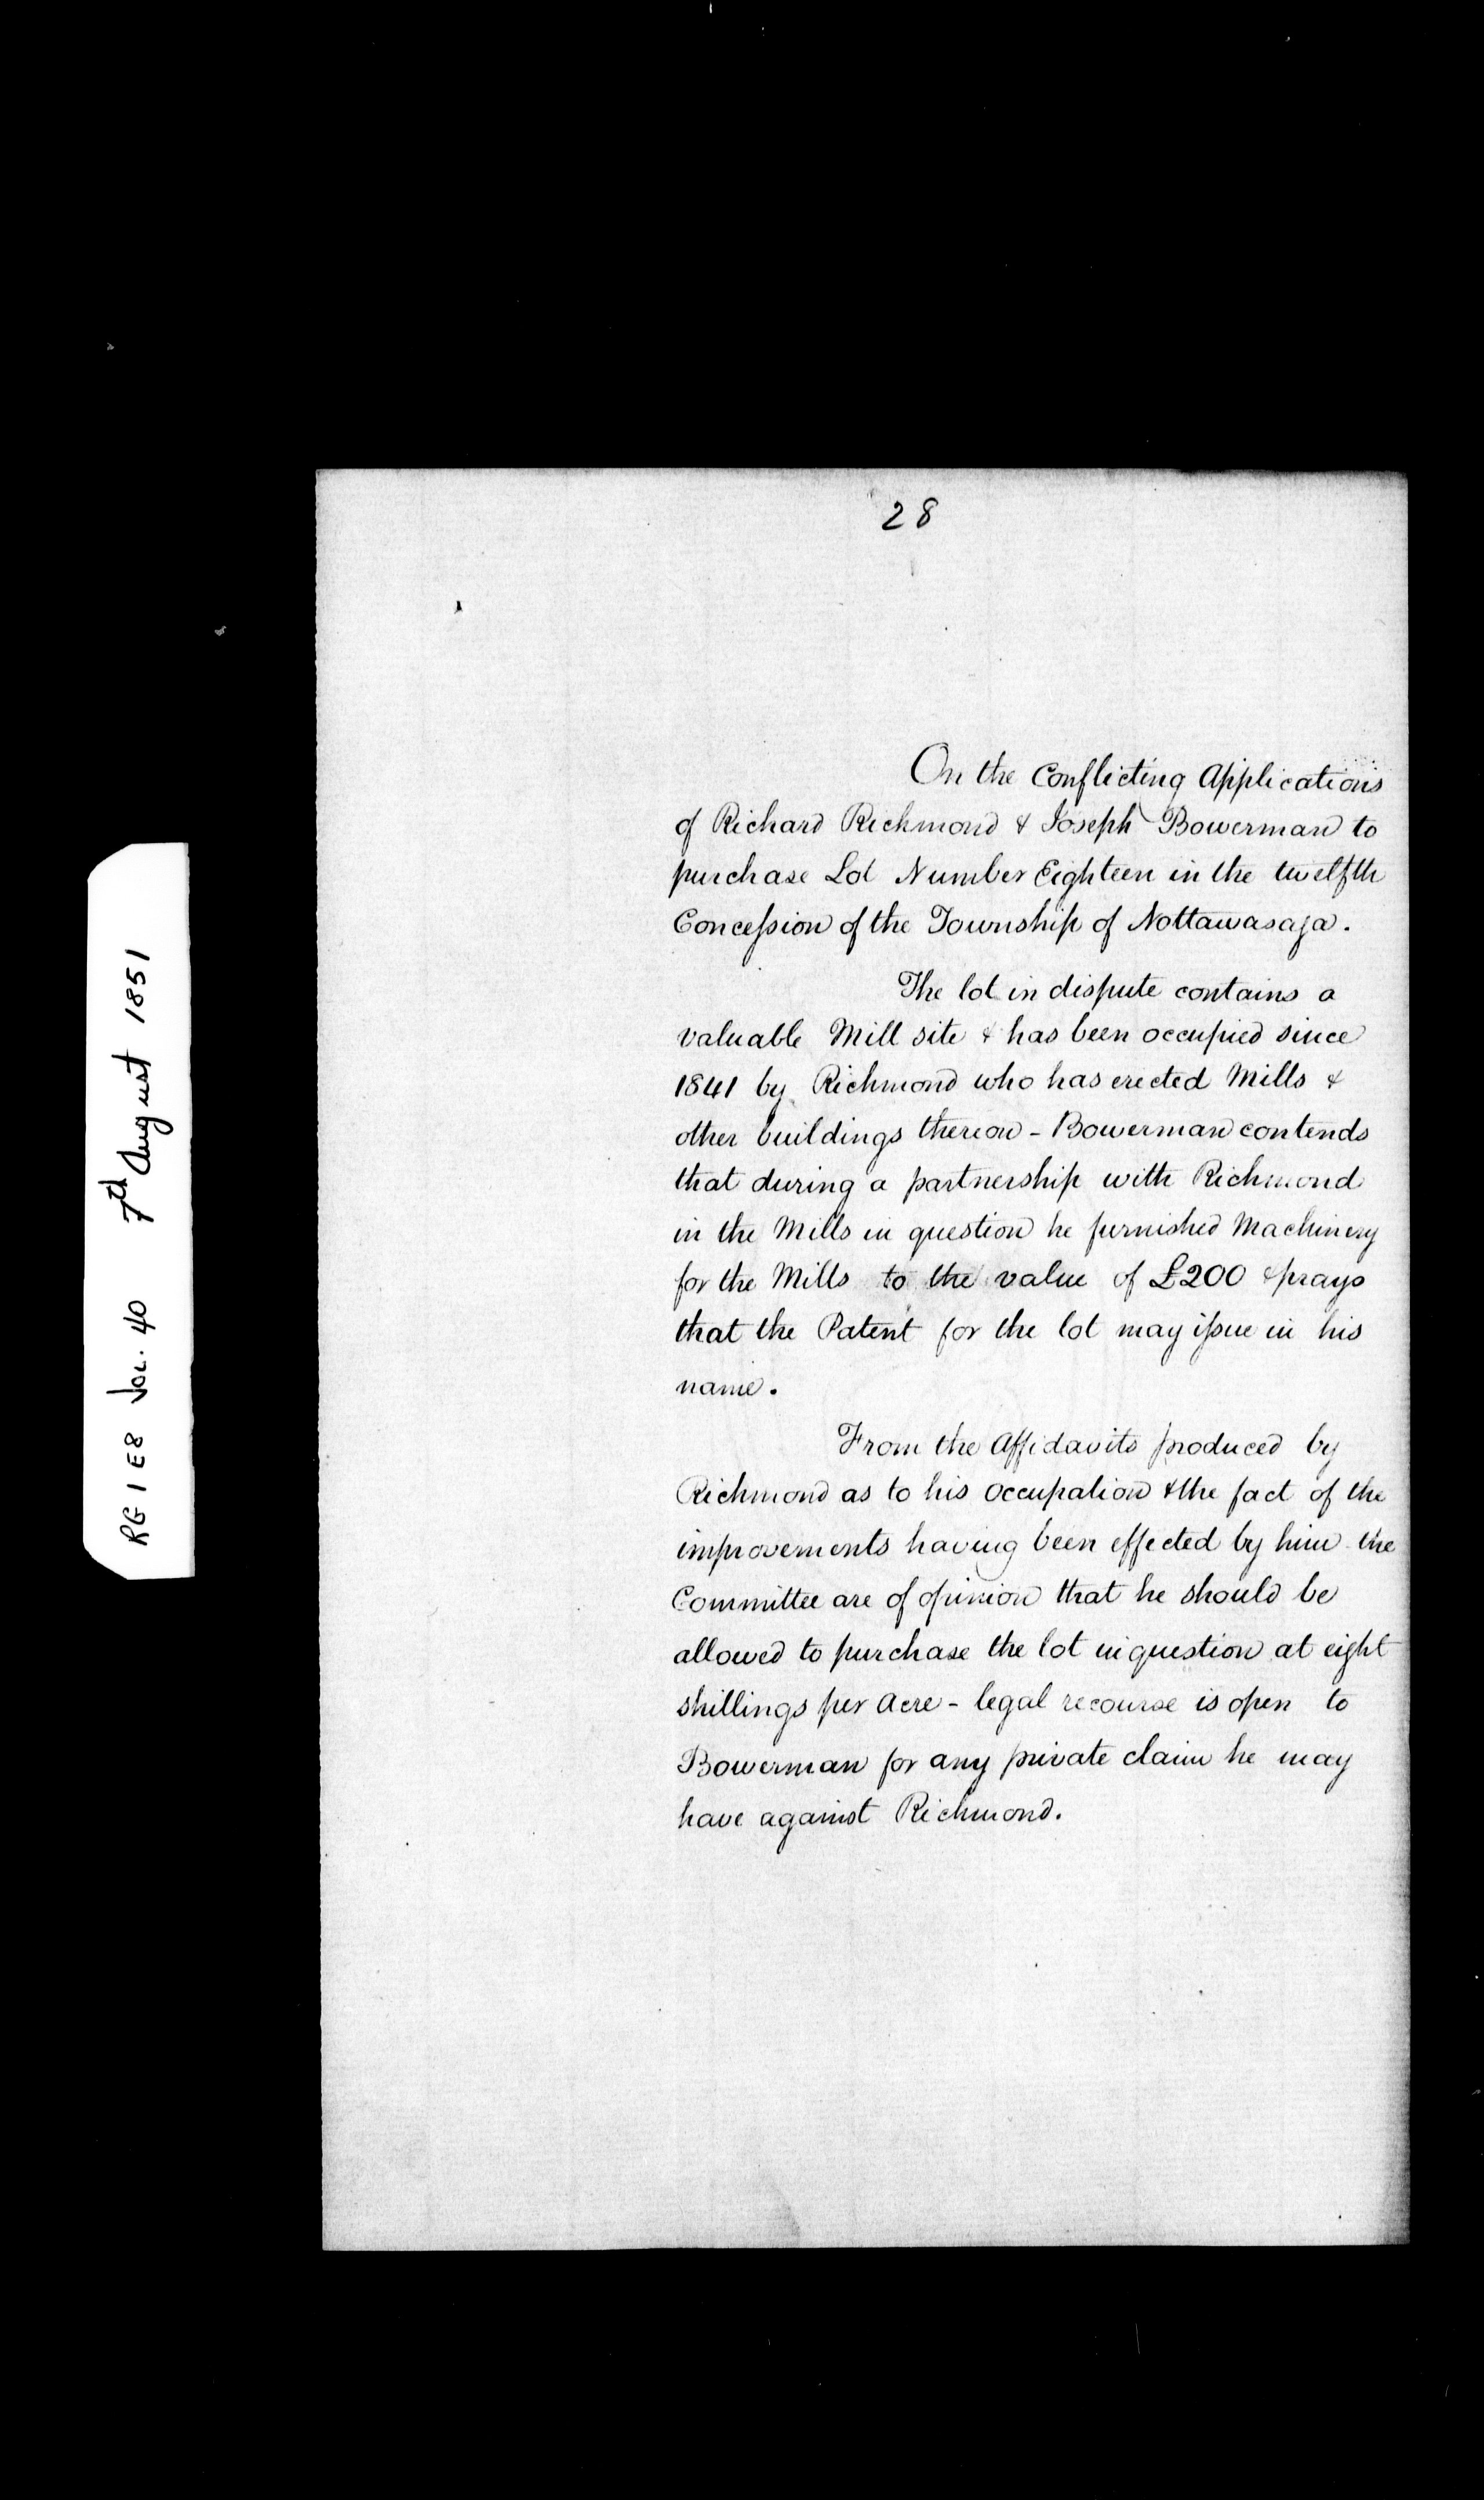 28
On the Conflicting Applications
of Richard Richmond & Joseph Bowerman to
purchase Lot Number Eighteen in the twelfth
Concession of the Township of Nottawasaga.
The lot in dispute contains a
valuable Mill site & has been occupied since
1841 by Richmond who has erected Mills &
other buildings thereon - Bowerman contends
that during a partnership with Richmond
in the Mills in question he furnished Machinery
for the Mills to the value of £200 & prays
that the Patent for the lot may issue in his
name.
From the Affidavits produced by
Richmond as to his occupation & the fact of the
improvements having been effected by him the
Committee are of opinion that he should be
allowed to purchase the lot in question at eight
shillings per Acre - legal recourse is open to
Bowerman for any private claim he may
have against Richmond.
RG 1 E8 Vol. 40 7th August 1851